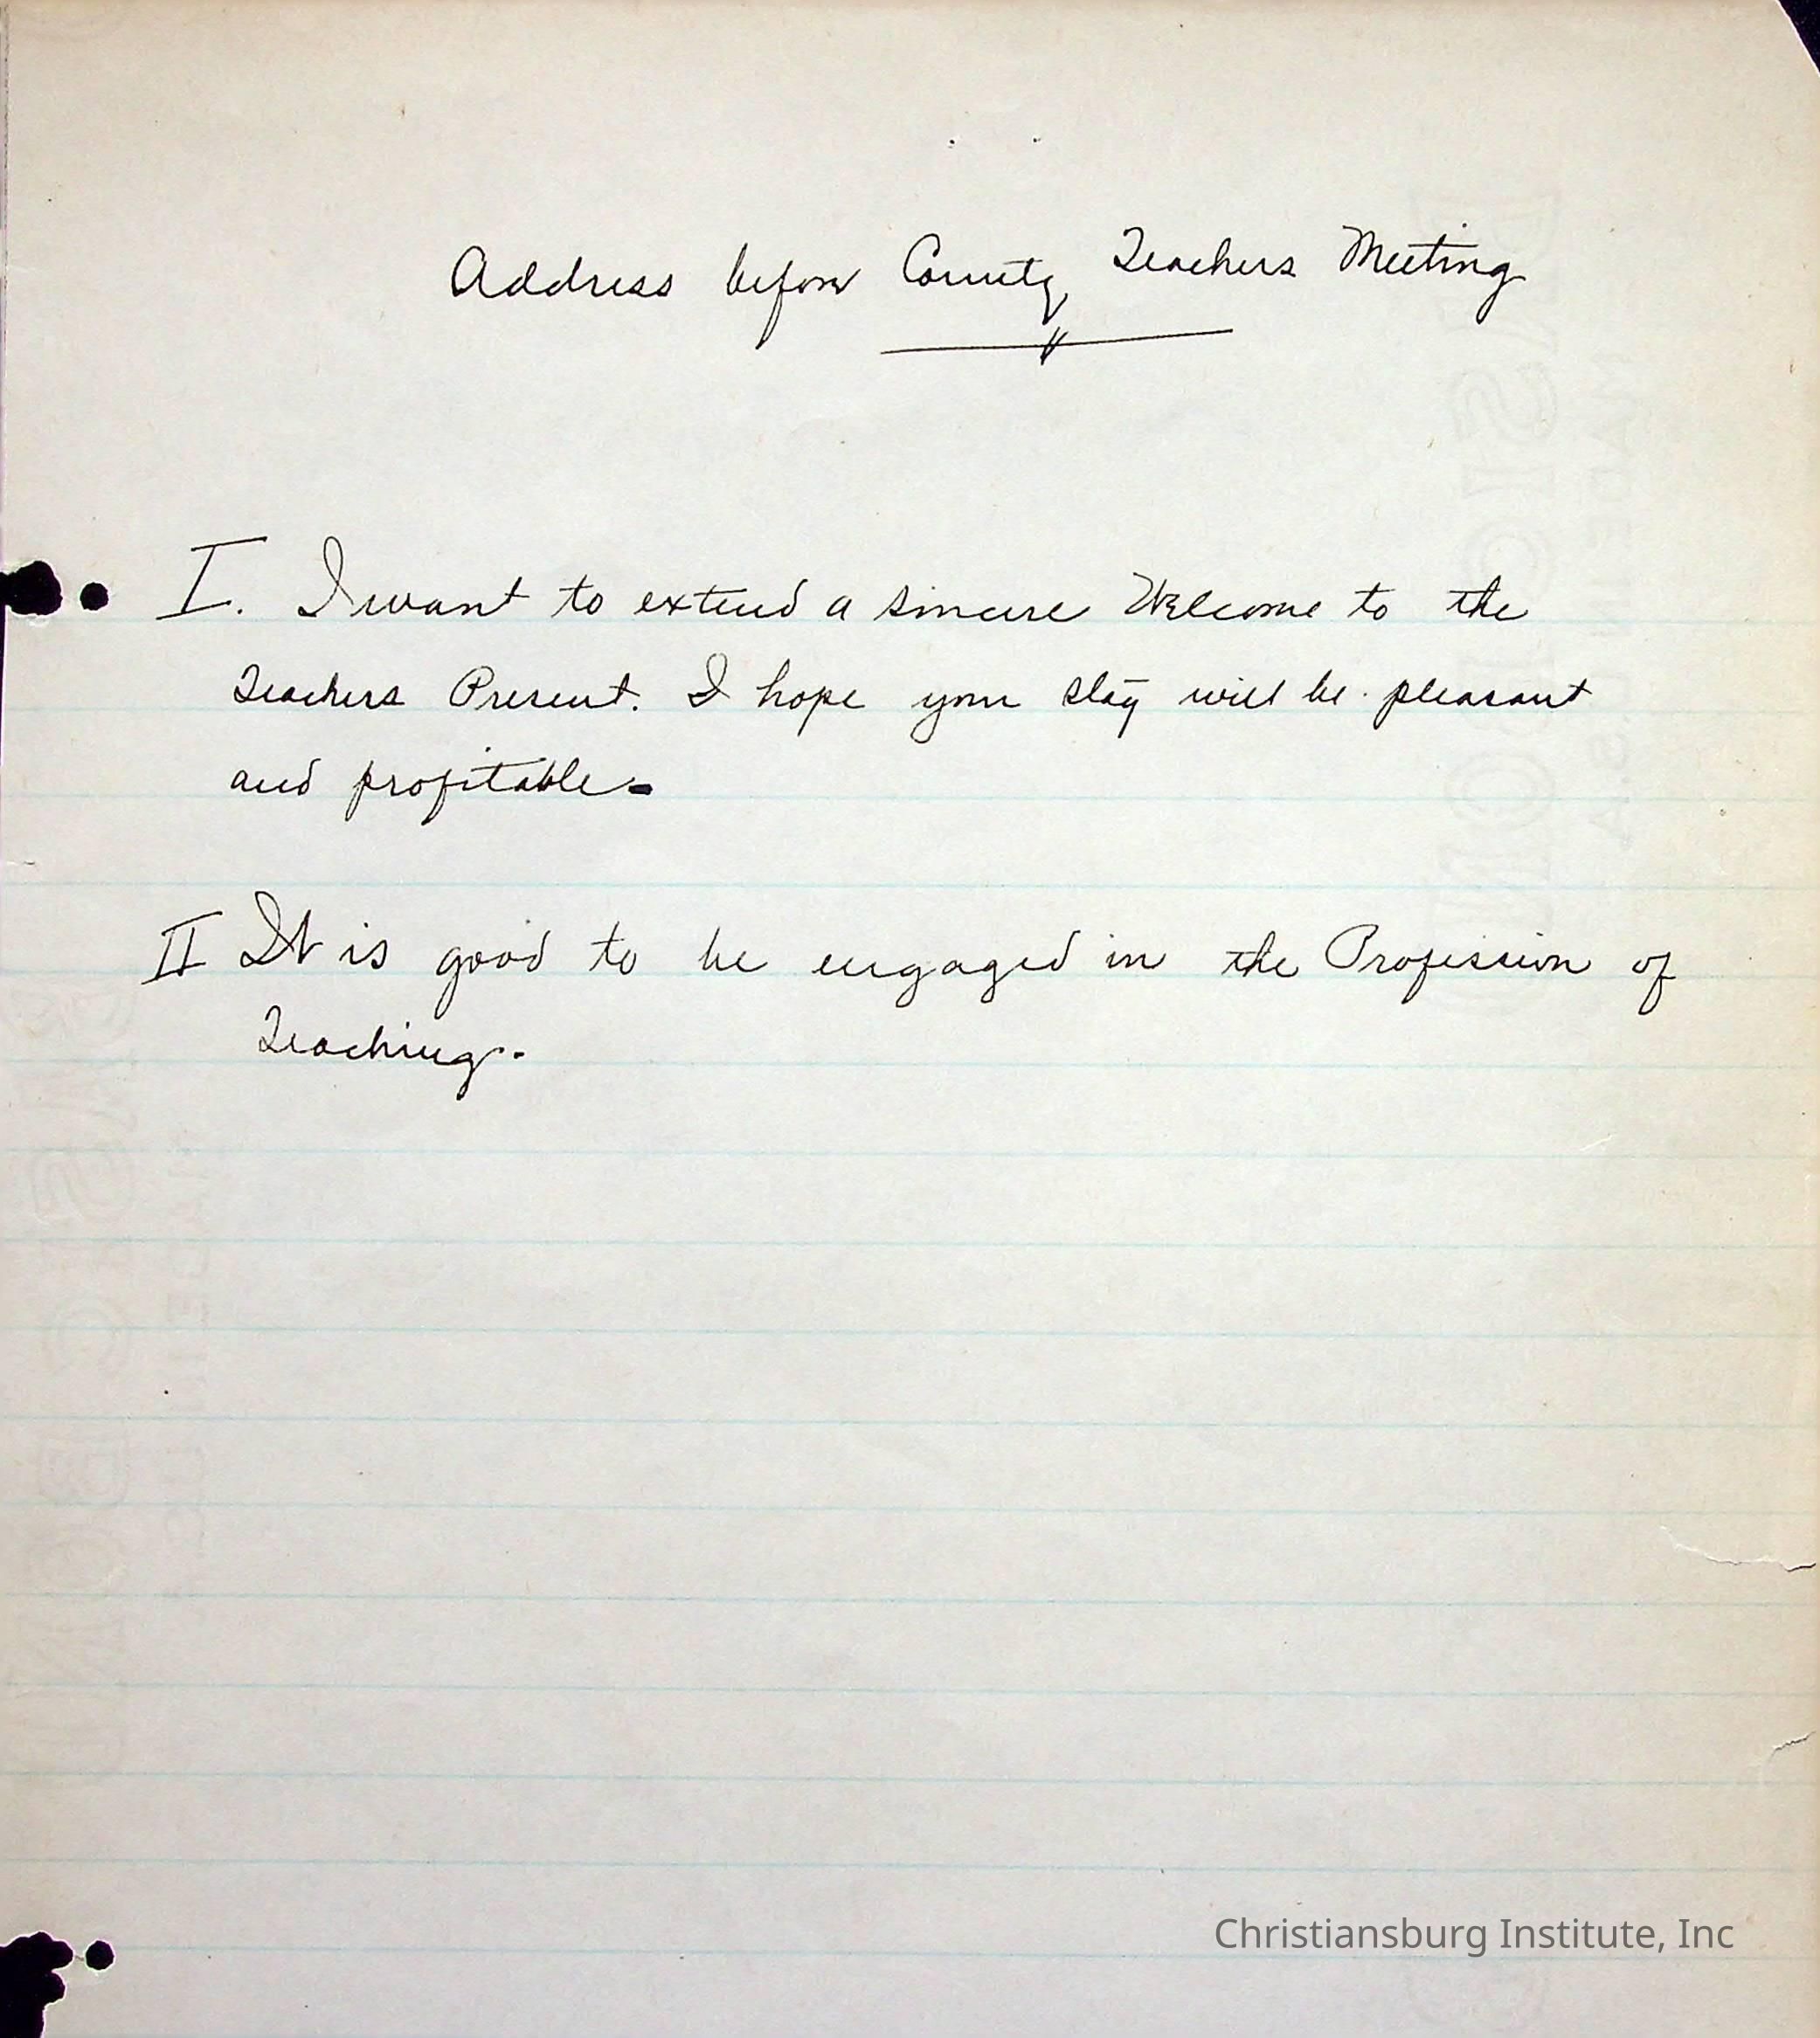 Address before County Teachers Meeting
I. I want to extend a sincere Welcome to the
Teachers Present. I hope your stay will be pleasant
and profitable.
II It is good to be engaged in the Profession of
Teaching.
Christiansburg Institute, Inc